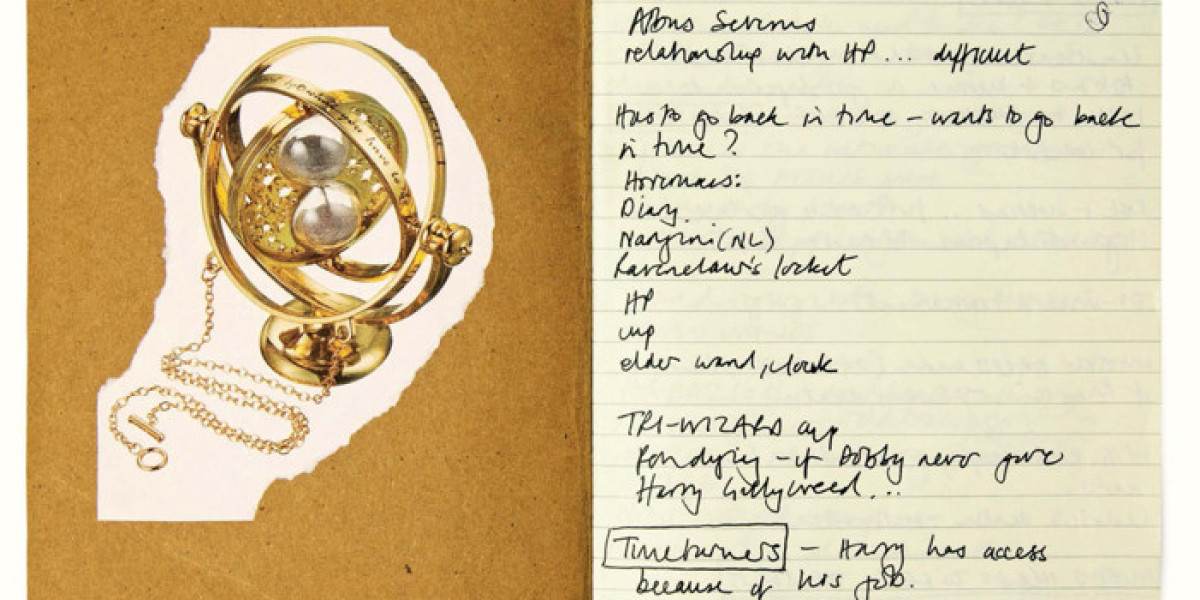 Albus Severus
relationship with HP... difficult
Has to go back in time – wants to go back
in time?
Horcruxes:
Diary.
Nangini (NL)
Ravenclaw's locket
HP
cup
elder wand, cloak
TRI-WIZARD cup
Ron dying – if Dobby never gave
Harry Gillyweed...
Timeturners – Harry has access
because of his job.